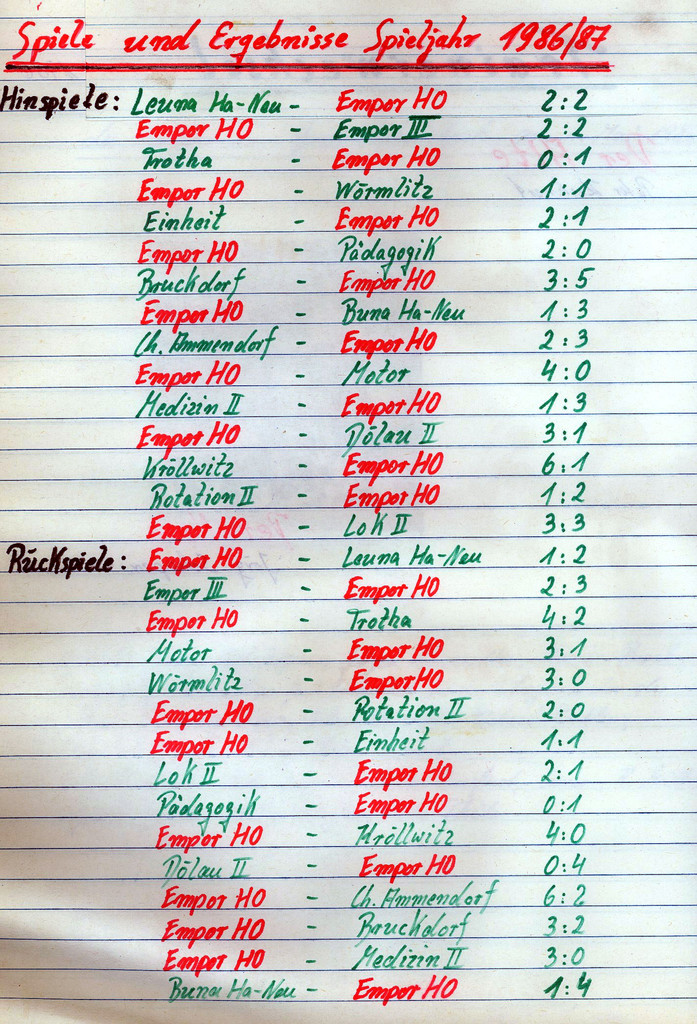 Spiele und Ergebnisse Spieljahr 1986/87
Hinspiele: Leuna Ha-Neu - Empor HO 2:2
Empor HO - Empor III 2:2
Trotha - Empor HO 0:1
Empor HO - Wörmlitz 1:1
Einheit - Empor HO 2:1
Empor HO - Pädagogik 2:0
Bruckdorf - Empor HO 3:5
Empor HO - Buna Ha-Neu 1:3
Ch. Ammendorf - Empor HO 2:3
Empor HO - Motor 4:0
Medizin II - Empor HO 1:3
Empor HO - Dölau II 3:1
Kröllwitz - Empor HO 6:1
Rotation II - Empor HO 1:2
Empor HO - Lok II 3:3
Rückspiele: Empor HO - Leuna Ha-Neu 1:2
Empor III - Empor HO 2:3
Empor HO - Trotha 4:2
Motor - Empor HO 3:1
Wörmlitz - Empor HO 3:0
Empor HO - Rotation II 2:0
Empor HO - Einheit 1:1
Lok II - Empor HO 2:1
Pädagogik - Empor HO 0:1
Empor HO - Kröllwitz 4:0
Dölau II - Empor HO 0:4
Empor HO - Ch. Ammendorf 6:2
Empor HO - Bruckdorf 3:2
Empor HO - Medizin II 3:0
Buna Ha-Neu - Empor HO 1:4